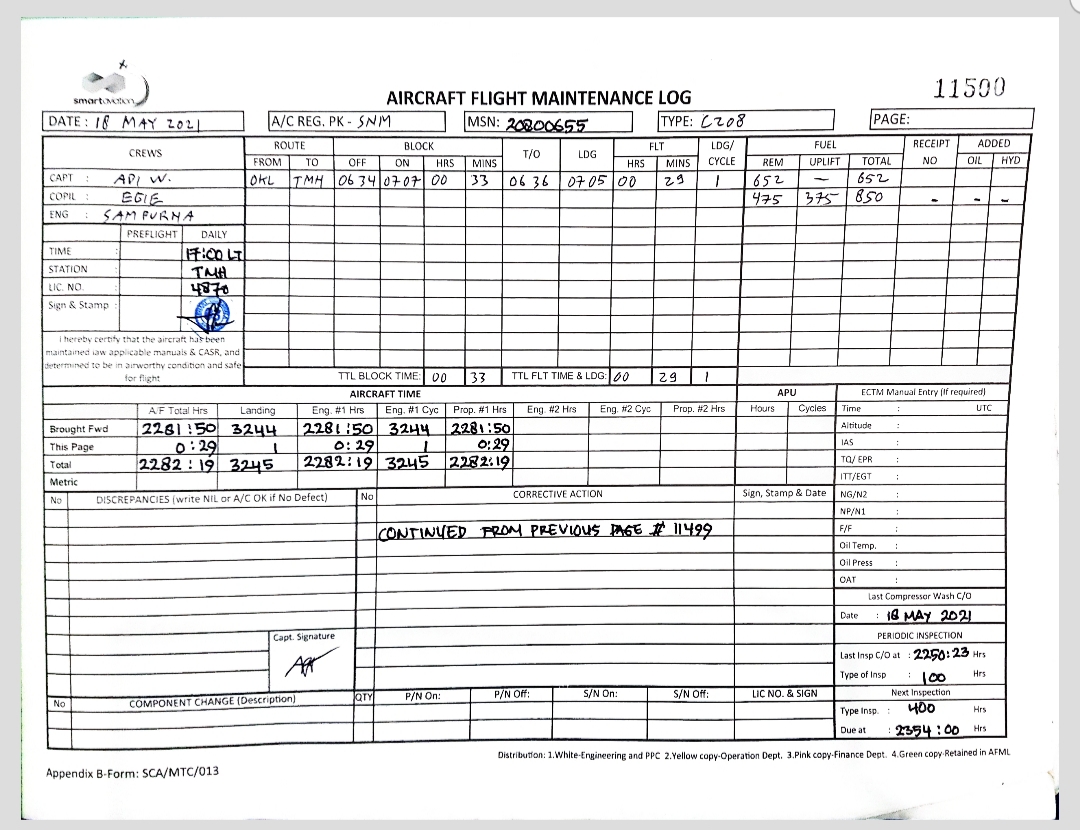 smartaviation
11500
AIRCRAFT FLIGHT MAINTENANCE LOG
DATE : 18 MAY 2021 A/C REG. PK - SNM MSN: 20800655 TYPE: C208 PAGE:
CREWS ROUTE BLOCK T/O LDG FLT LDG/ CYCLE FUEL RECEIPT NO ADDED
FROM TO OFF ON HRS MINS HRS MINS REM UPLIFT TOTAL OIL HYD
CAPT : API W. OKL TMH 06 34 07 07 00 33 06 36 07 05 00 29 1 652 — 652
COPIL : EGIE 475 375 850 - - -
ENG : SAMPURNA
PREFLIGHT DAILY
TIME : 17:00 LT
STATION : TMH
LIC. NO. : 4870
Sign & Stamp :
I hereby certify that the aircraft has been
maintained iaw applicable manuals & CASR, and
determined to be in airworthy condition and safe
for flight
TTL BLOCK TIME: 00 33 TTL FLT TIME & LDG: 00 29 1
AIRCRAFT TIME APU ECTM Manual Entry (If required)
A/F Total Hrs Landing Eng. #1 Hrs Eng. #1 Cyc Prop. #1 Hrs Eng. #2 Hrs Eng. #2 Cyc Prop. #2 Hrs Hours Cycles Time : UTC
Brought Fwd 2281:50 3244 2281:50 3244 2281:50 Altitude :
This Page 0:29 1 0:29 1 0:29 IAS :
Total 2282:19 3245 2282:19 3245 2282:19 TQ/ EPR :
Metric ITT/EGT :
No DISCREPANCIES (write NIL or A/C OK if No Defect) No CORRECTIVE ACTION Sign, Stamp & Date NG/N2 :
NP/N1 :
CONTINUED FROM PREVIOUS PAGE # 11499 F/F :
Oil Temp. :
Oil Press :
OAT :
Last Compressor Wash C/O
Date : 18 MAY 2021
Capt. Signature PERIODIC INSPECTION
Last Insp C/O at : 2250:23 Hrs
Type of Insp : 100 Hrs
No COMPONENT CHANGE (Description) QTY P/N On: P/N Off: S/N On: S/N Off: LIC NO. & SIGN Next Inspection
Type Insp. : 400 Hrs
Due at : 2354:00 Hrs
Distribution: 1.White-Engineering and PPC 2.Yellow copy-Operation Dept. 3.Pink copy-Finance Dept. 4.Green copy-Retained in AFML
Appendix B-Form: SCA/MTC/013